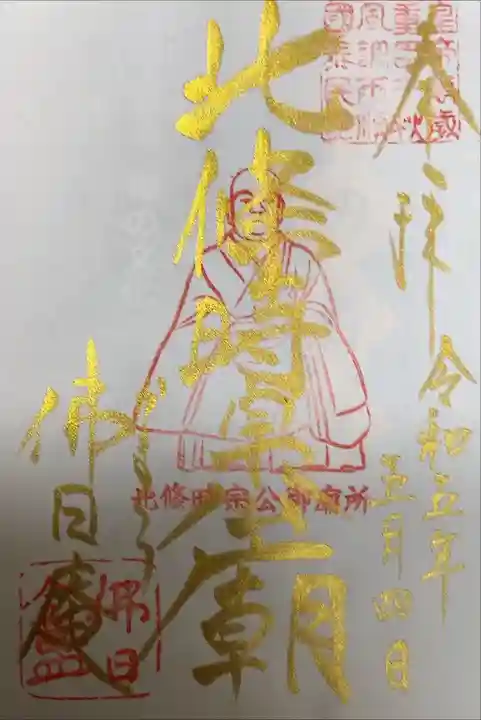 奉拝
令和五年
五月四日
北條時宗公廟
北條時宗公御廟所
佛日庵
佛日